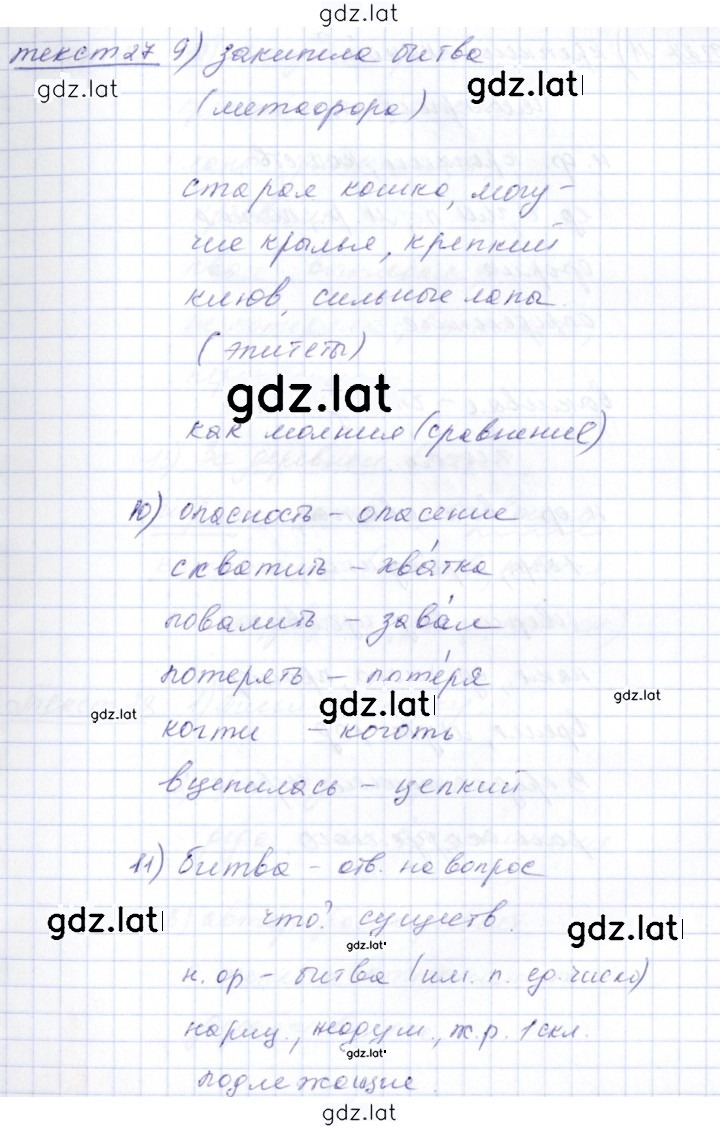 gdz.lat
текст 27 9) закипела битва
gdz.lat
gdz.lat
(метафора)
старая кошка, могу-
чие крылья, крепкий
клюв, сильные лапы
(эпитеты)
gdz.lat
как молния (сравнение)
10) опасность – опасение
схватить – хва́тка
повалить – зава́л
потерять – поте́ря
gdz.lat
gdz.lat
gdz.lat
когти – коготь
вцепилась – цепкий
11) битва – отв. на вопрос
gdz.lat
что? существ.
gdz.lat
gdz.lat
н. ф – битва (им. п. ед. число)
нариц., неодуш., ж.р. 1 скл.
gdz.lat
подлежащие.
gdz.lat